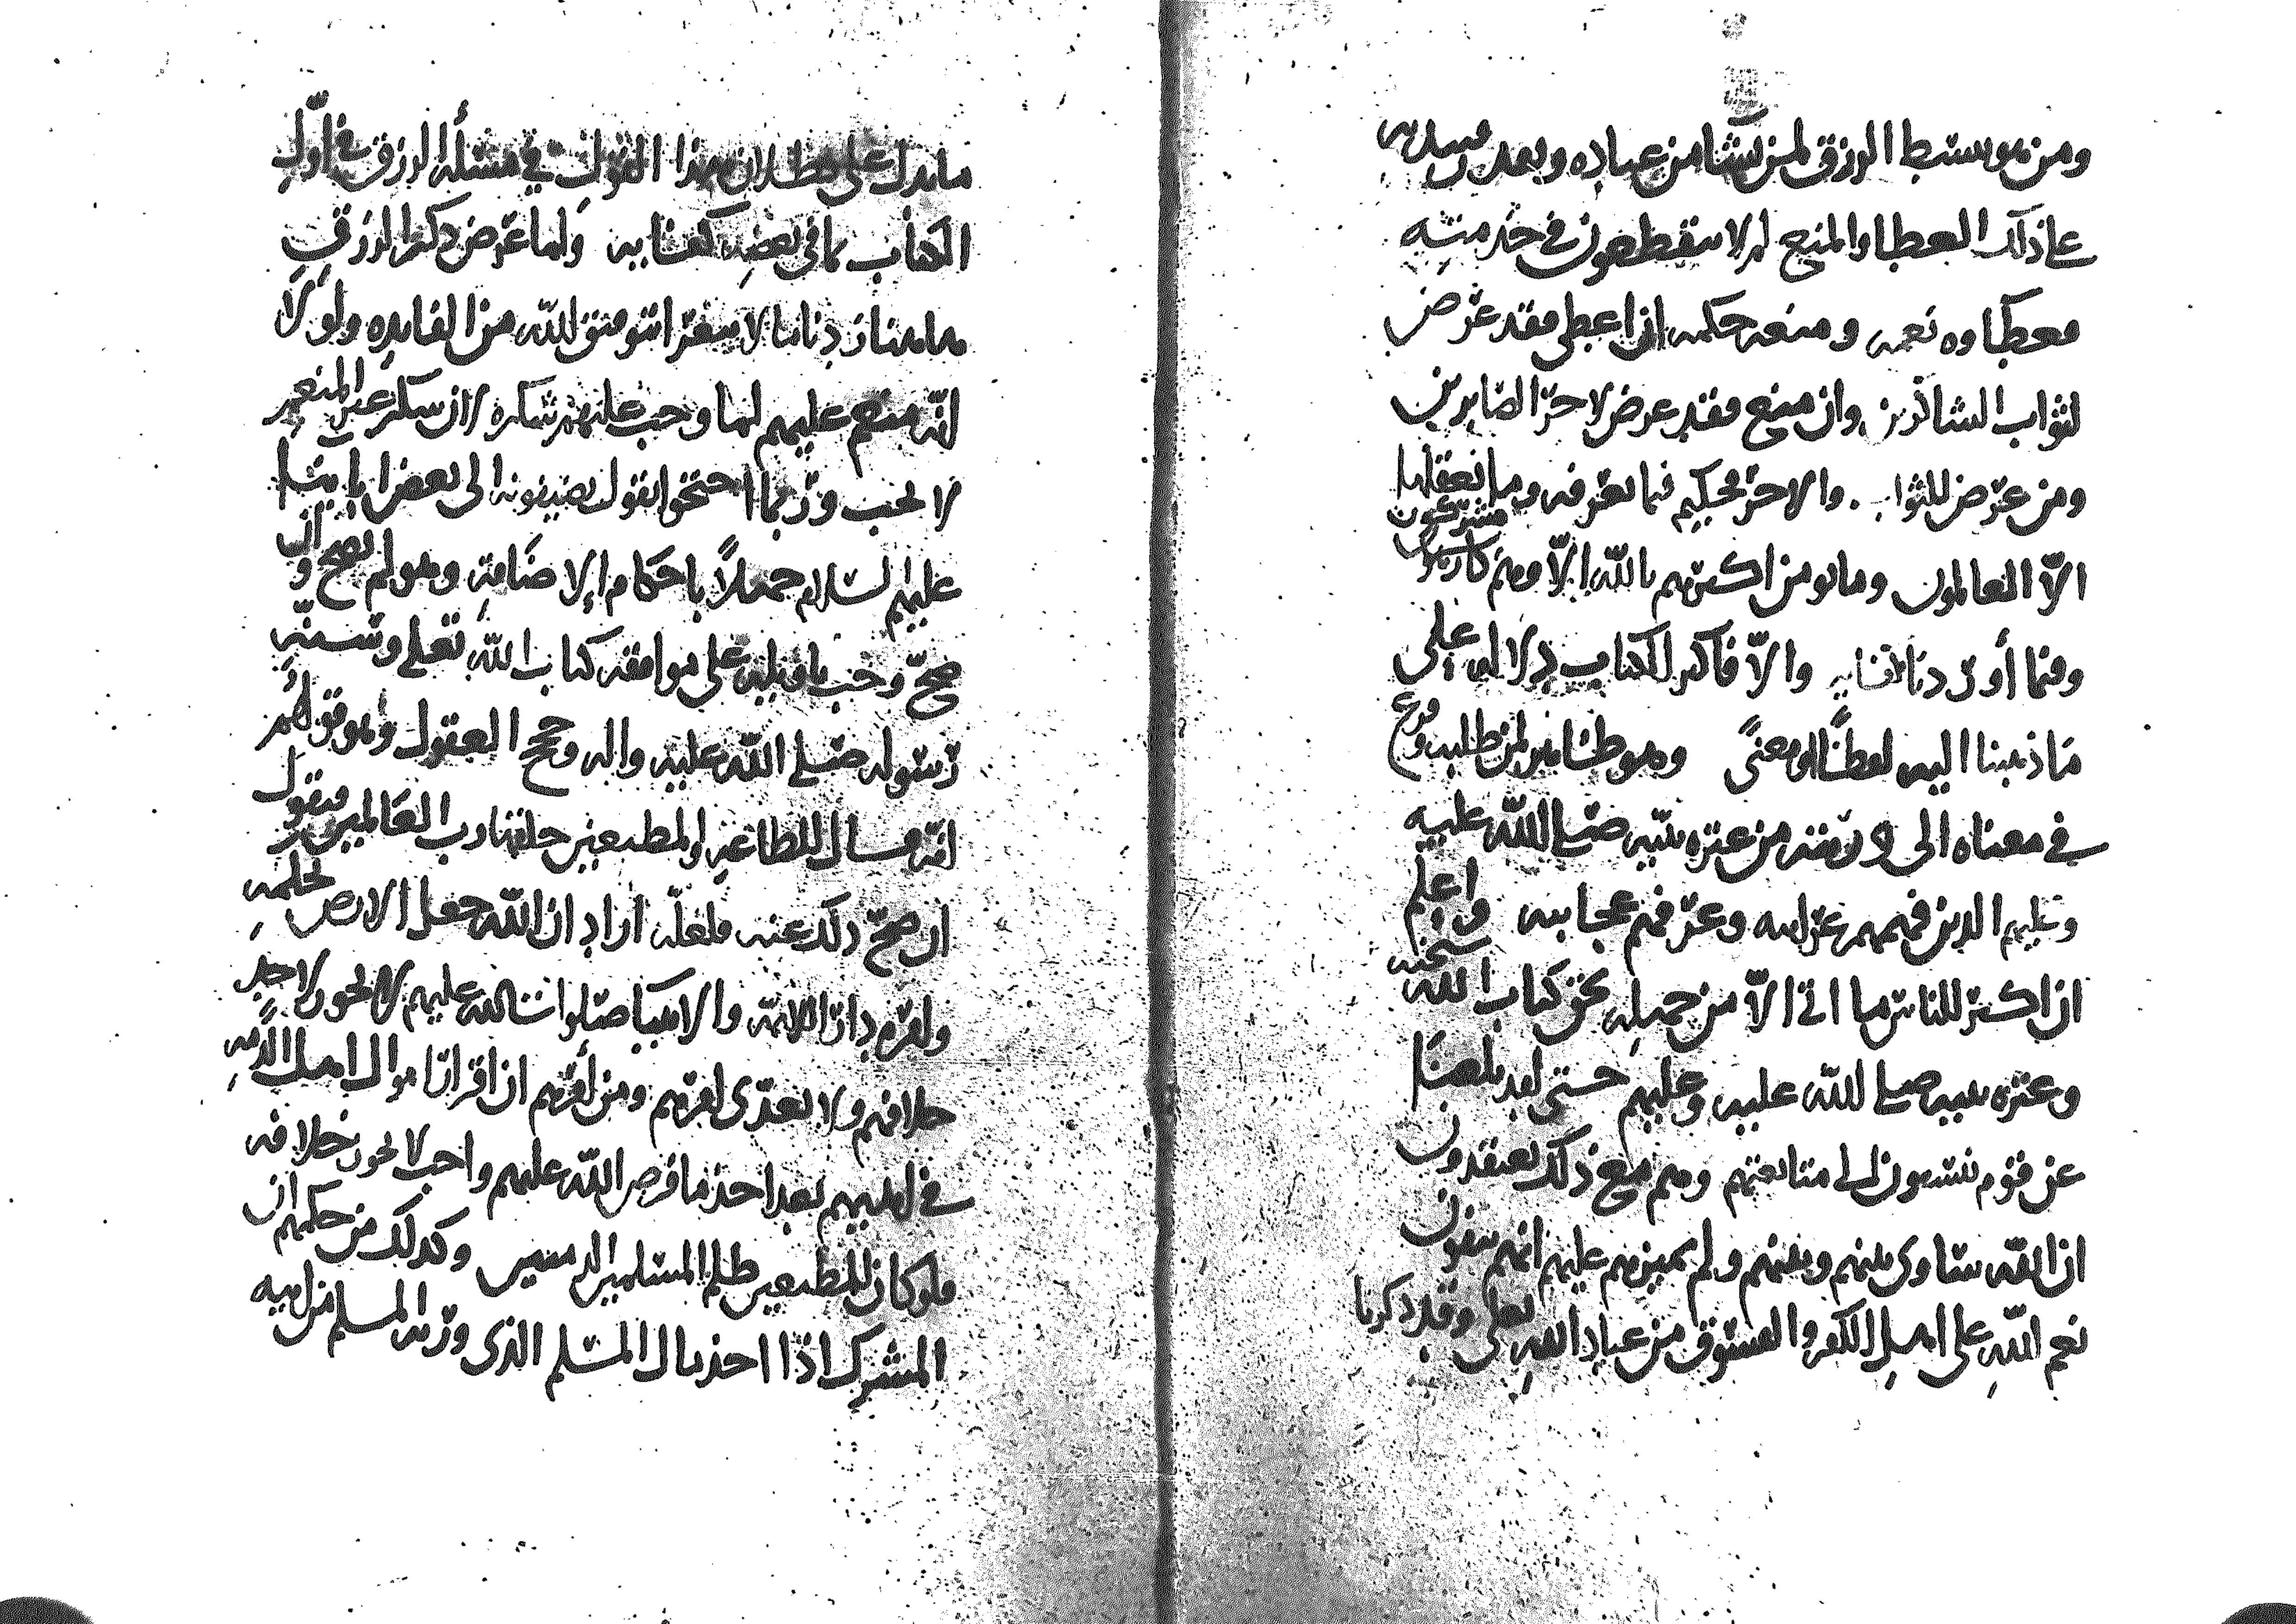 ومن هو يبسط الرزق لمن يشا من عباده وبعد
على ذلك العطا والمنع لم لا يسقطعون في
فعطاوه نعمه ومنعه حكمه ان اعطى فقد عرض
لثواب الشاكرين وان منع فقد عرض لاجر الصابرين
ومن عرض للثواب والاجر فحكيم فيما نعرفه وما يعقلها
الا العالمون وما يومن اكثرهم بالله الا وهم مشركون
وفيما أوردنا كفايه والا فاكثر الكتاب دلاله على
ما ذهبنا اليه لفظًا ومعنًى وهو ظاهر لمن طلبه
في معناه الى من عترة نبيه صلى الله عليه
وعليهم الذين فهمهم غرايبه وعرفهم عجايبه واعلم
ان اكثر الناس ما اتي الا من جهله بحق كتاب الله سبحنه
وعترة نبيه صلى الله عليه وعليهم حتى لقد بلغنا
عن قوم ينتسبون الى متابعتهم وهم مع ذلك يعتقدون
ان الله ساوى بينهم وبينهم ولم يميزهم عليهم انهم ينفون
نعم الله على اهل الكفر والفسوق من عباد الله تعالى وقد ذكرنا
ما يدل على بطلان هذا القول في مسئلة الرزق في اول
الكتاب بما في بعضه كفايه ولما عرض ذكر الرزق
هاهنا زدنا ما لا يتعرا بتوفيق الله من الفايده ولولا
انه منعم عليهم لما وجب عليهم شكره لان شكر غير المنعم
لا يجب وربما احتجوا بقول يضيفونه الى بعض ايمتنا
عليهم السلام جهلاً باحكام الاضافة وهو لم يصح وان
صح وجب تاويله على موافقه كتاب الله تعلى وسنة
رسوله صلى الله عليه واله وحجج العقول وهو قولهم
انه قال للطاغين والمطيعين خلقها رب العالمين فنقول
ان صح ذلك عنه فلعله اراد ان الله جعل الارض بحكمه
وامره دارا والايمه والانبيا صلوات الله عليهم لا يجوز لاحد
خلافهم ولا تعدى امرهم ومن أمرهم ان اقرار اموال اهل الذمه
في ايديهم بعد اخذ ما فرض الله عليهم واجب لا يجوز خلافه
فلو كان للمطيعين ظلم المسلمين الذميين وكذلك من حكمهم ان
المشرك اذا اخذ مال المسلم الذى ورثه المسلم من ابيه